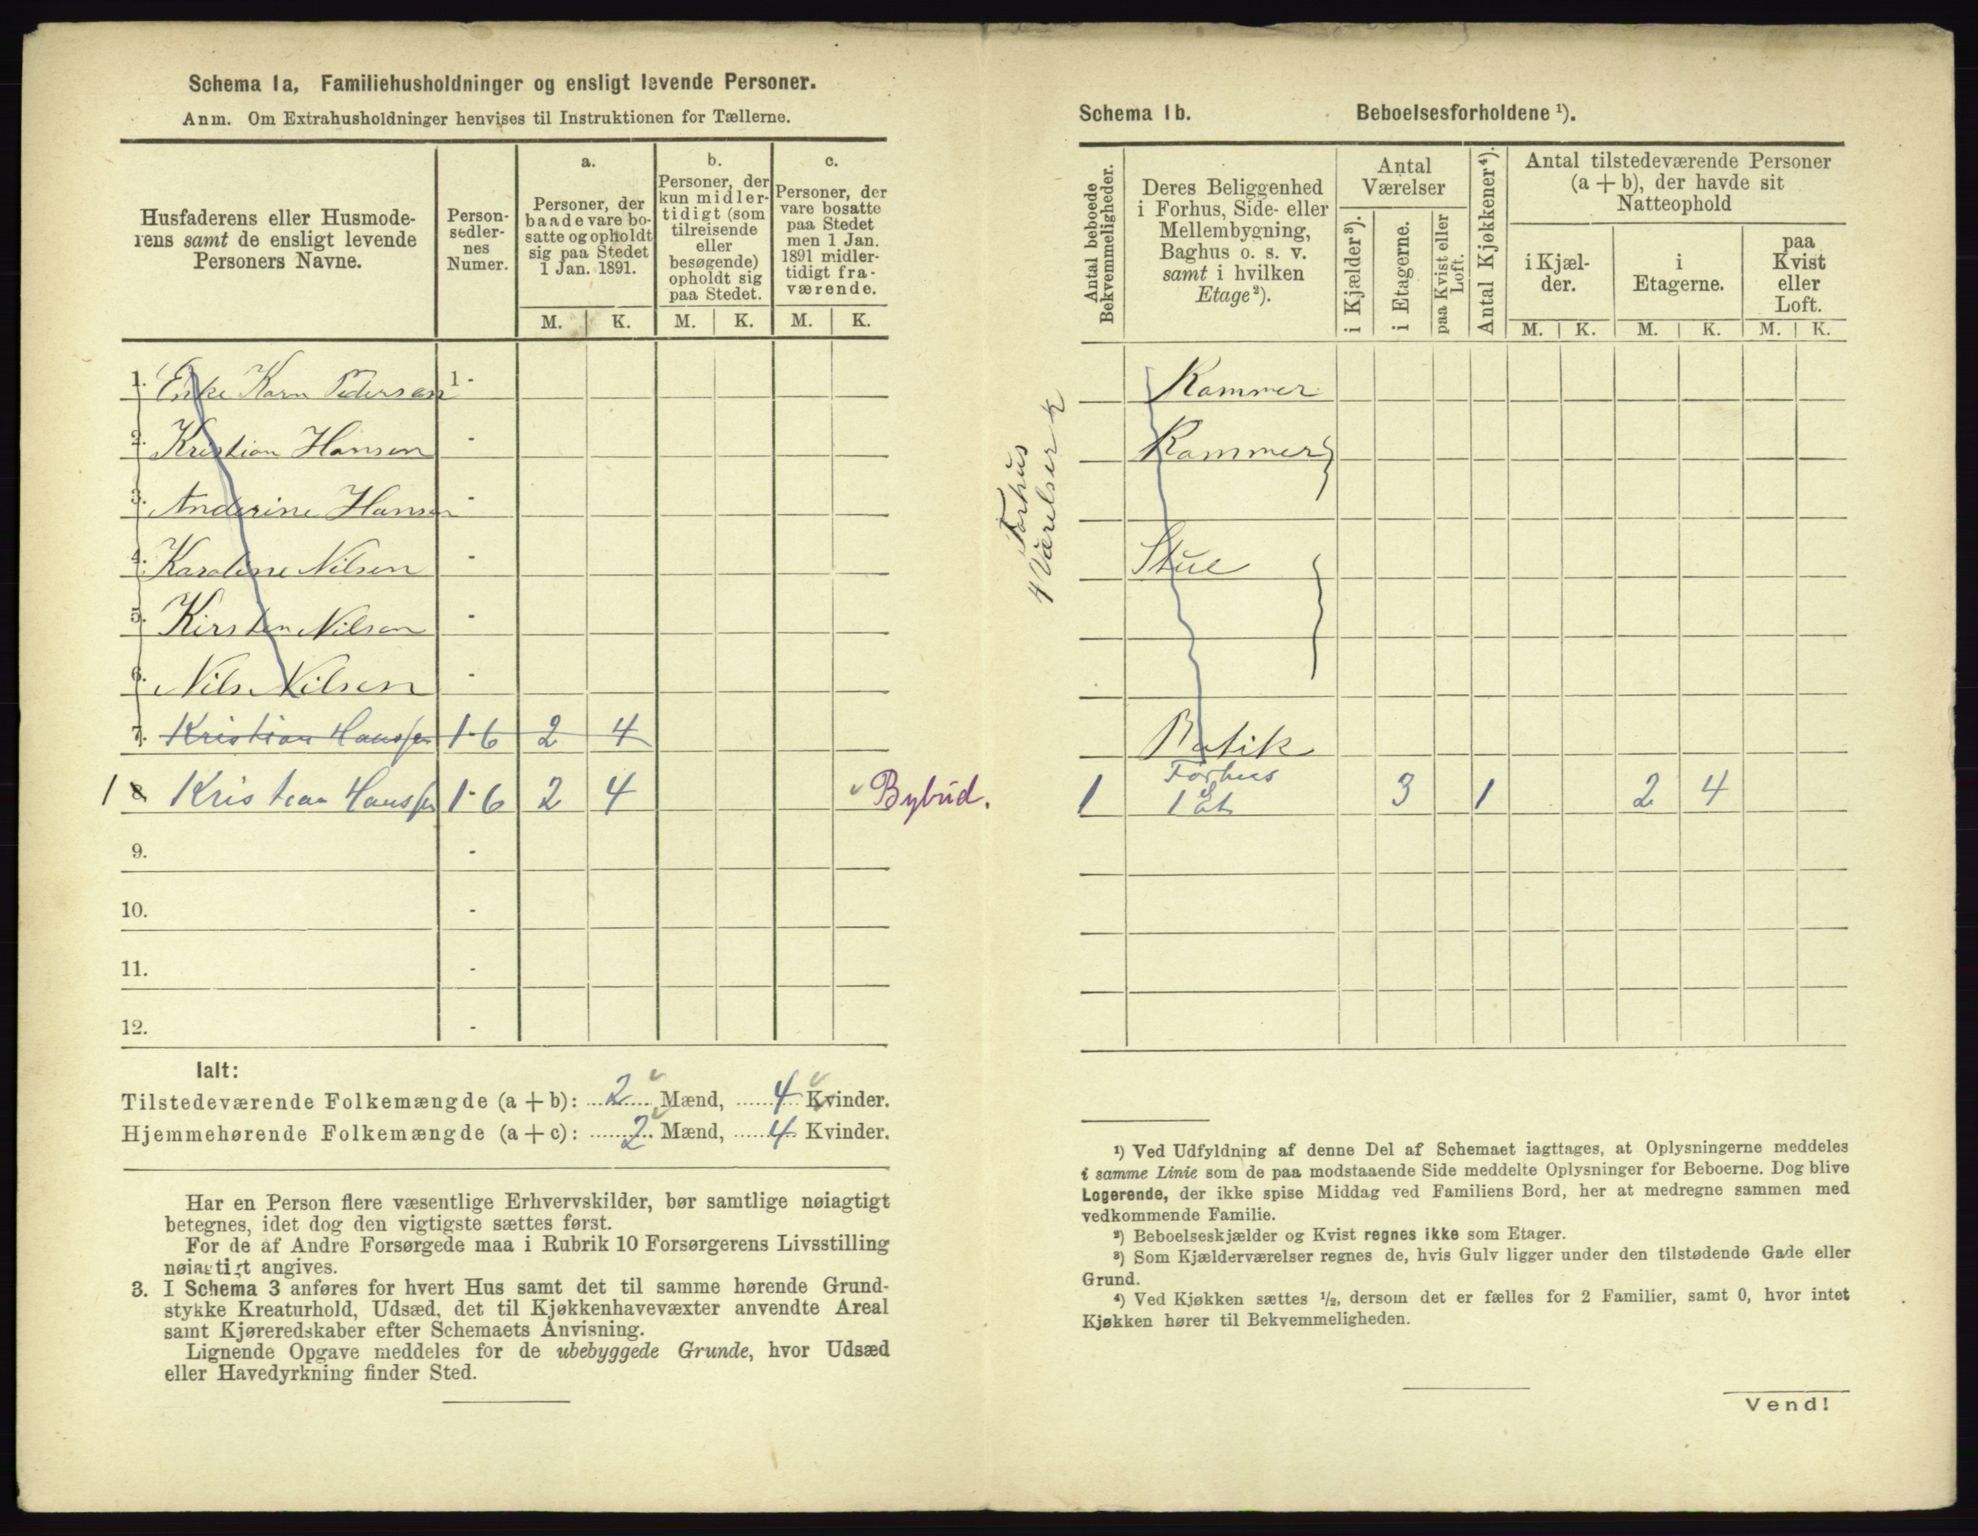 Schema 1a, Familiehusholdninger og ensligt levende Personer.
Anm. Om Extrahusholdninger henvises til Instruktionen for Tællerne.
Husfaderens eller Husmode-
rens samt de ensligt levende
Personers Navne.
Person-
sedler-
nes
Numer.
a.
Personer, der
baade vare bo-
satte og opholdt
sig paa Stedet
1 Jan. 1891.
b.
Personer, der
kun midler-
tidigt (som
tilreisende
eller
besøgende)
opholdt sig
paa Stedet.
c.
Personer, der
vare bosatte
paa Stedet
men 1 Jan.
1891 midler-
tidigt fra-
værende.
M. K. M. K. M. K.
1. Enke Karn Pedersen 1 -
2. Kristian Hansen -
3. Anderine Hansen -
4. Karoline Nilsen -
5. Kirsten Nilsen -
6. Nils Nilsen -
7. Kristian Hanssen 1-6 2 4
1 8 Kristian Hanssen 1-6 2 4 Bybud.
9. -
10. -
11. -
12. -
Ialt:
Tilstedeværende Folkemængde (a + b): 2 Mænd, 4 Kvinder.
Hjemmehørende Folkemængde (a + c): 2 Mænd, 4 Kvinder.
Har en Person flere væsentlige Erhvervskilder, bør samtlige nøiagtigt
betegnes, idet dog den vigtigste sættes først.
For de af Andre Forsørgede maa i Rubrik 10 Forsørgerens Livsstilling
nøiagtigt angives.
3. I Schema 3 anføres for hvert Hus samt det til samme hørende Grund-
stykke Kreaturhold, Udsæd, det til Kjøkkenhavevæxter anvendte Areal
samt Kjøreredskaber efter Schemaets Anvisning.
Lignende Opgave meddeles for de ubebyggede Grunde, hvor Udsæd
eller Havedyrkning finder Sted.
Schema 1b. Beboelsesforholdene ¹).
Antal beboede
Bekvemmeligheder.
Deres Beliggenhed
i Forhus, Side- eller
Mellembygning,
Baghus o. s. v.
samt i hvilken
Etage²).
Antal
Værelser
i Kjælder³).
i Etagerne.
paa Kvist eller
Loft.
Antal Kjøkkener⁴).
Antal tilstedeværende Personer
(a + b), der havde sit
Natteophold
i Kjæl-
der.
i
Etagerne.
paa
Kvist
eller
Loft.
M. K. M. K. M. K.
Forhus
4 Værelser k
Kammer
Kammer
Stue
Butik
1 Forhus
1 Et 3 1 2 4
¹) Ved Udfyldning af denne Del af Schemaet iagttages, at Oplysningerne meddeles
i samme Linie som de paa modstaaende Side meddelte Oplysninger for Beboerne. Dog blive
Logerende, der ikke spise Middag ved Familiens Bord, her at medregne sammen med
vedkommende Familie.
²) Beboelseskjælder og Kvist regnes ikke som Etager.
³) Som Kjælderværelser regnes de, hvis Gulv ligger under den tilstødende Gade eller
Grund.
⁴) Ved Kjøkken sættes ½, dersom det er fælles for 2 Familier, samt 0, hvor intet
Kjøkken hører til Bekvemmeligheden.
Vend!